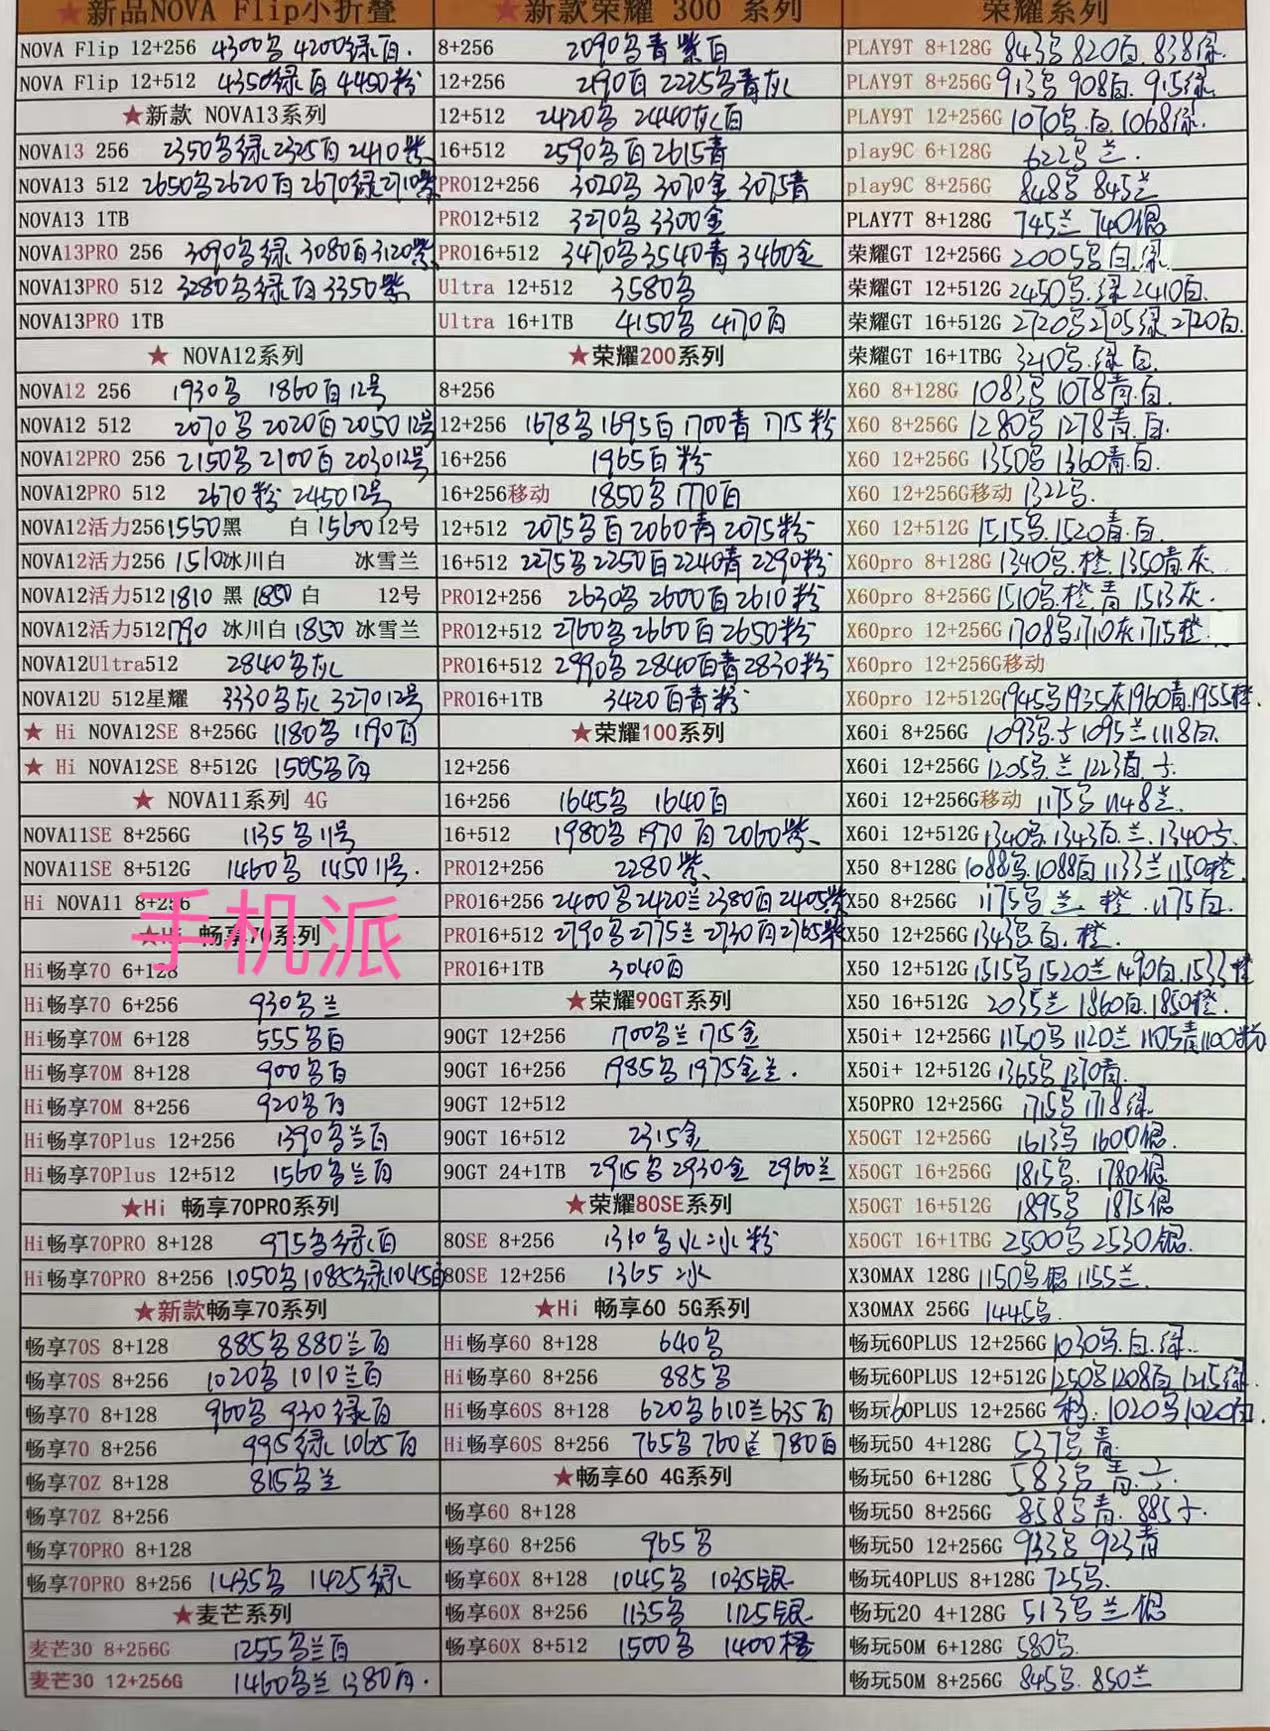 ★新品NOVA Flip小折叠
NOVA Flip 12+256 4300乌 4200绿白.
NOVA Flip 12+512 4350绿白 4450粉
★新款 NOVA13系列
NOVA13 256 2350乌绿 2325白 2410紫
NOVA13 512 2650乌2620白 2670绿2710紫
NOVA13 1TB
NOVA13PRO 256 3090乌绿 3080白3120紫
NOVA13PRO 512 3280乌绿白 3350紫
NOVA13PRO 1TB
★ NOVA12系列
NOVA12 256 1930乌 1860白12号
NOVA12 512 2070乌 2020白 2050 12号
NOVA12PRO 256 2150乌 2100白 2030 12号
NOVA12PRO 512 2670粉 2450 12号
NOVA12活力256 1550黑 白 1560 12号
NOVA12活力256 1510冰川白 冰雪兰
NOVA12活力512 1810 黑 1850 白 12号
NOVA12活力512 1790 冰川白 1850 冰雪兰
NOVA12Ultra512 2840乌灰
NOVA12U 512星耀 3330乌灰 3270 12号
★ Hi NOVA12SE 8+256G 1180乌 1190白
★ Hi NOVA12SE 8+512G 1505乌白
★ NOVA11系列 4G
NOVA11SE 8+256G 1135乌 11号
NOVA11SE 8+512G 1460乌 1450 11号.
Hi NOVA11 8+256
手机派
★Hi 畅享70系列
Hi畅享70 6+128
Hi畅享70 6+256 930乌兰
Hi畅享70M 6+128 555乌白
Hi畅享70M 8+128 900乌白
Hi畅享70M 8+256 920乌白
Hi畅享70Plus 12+256 1390乌兰白
Hi畅享70Plus 12+512 1560乌兰白
★Hi 畅享70PRO系列
Hi畅享70PRO 8+128 975乌绿白
Hi畅享70PRO 8+256 1050乌1085绿1045白
★新款畅享70系列
畅享70S 8+128 885乌880兰白
畅享70S 8+256 1020乌 1010兰白
畅享70 8+128 960乌 930绿白
畅享70 8+256 995绿 1065白
畅享70Z 8+128 815乌兰
畅享70Z 8+256
畅享70PRO 8+128
畅享70PRO 8+256 1435乌 1425绿
★麦芒系列
麦芒30 8+256G 1255乌兰白
麦芒30 12+256G 1460乌兰 1380白.
★新款荣耀 300 系列
8+256 2090乌青紫白
12+256 2190白 2225乌青灰
12+512 2420乌 2440灰白
16+512 2590乌白 2615青
PRO12+256 3020乌 3070金 3075青
PRO12+512 3270乌 3300金
PRO16+512 3470乌3540青 3460金
Ultra 12+512 3580乌
Ultra 16+1TB 4150乌 4170白
★荣耀200系列
8+256
12+256 1678乌 1695白 1700青 1715粉
16+256 1965白粉
16+256移动 1850乌 1770白
12+512 2075乌白 2060青 2075粉
16+512 2275乌 2250白 2240青 2290粉
PRO12+256 2630乌 2600白 2610粉
PRO12+512 2760乌 2660白 2650粉
PRO16+512 2990乌 2840白青 2830粉
PRO16+1TB 3420白青粉
★荣耀100系列
12+256
16+256 1645乌 1640白
16+512 1980乌 1970白 2060紫
PRO12+256 2280紫
PRO16+256 2400乌 2420兰2380白 2405紫
PRO16+512 2790乌2775兰 2730白2765紫
PRO16+1TB 3040白
★荣耀90GT系列
90GT 12+256 1700乌兰 1715金
90GT 16+256 1985乌 1975金兰.
90GT 12+512
90GT 16+512 2315金
90GT 24+1TB 2915乌 2930金 2960兰
★荣耀80SE系列
80SE 8+256 1310乌水冰粉
80SE 12+256 1365冰
★Hi 畅享60 5G系列
Hi畅享60 8+128 640乌
Hi畅享60 8+256 885乌
Hi畅享60S 8+128 620乌610兰635白
Hi畅享60S 8+256 765乌 760兰 780白
★畅享60 4G系列
畅享60 8+128
畅享60 8+256 965乌
畅享60X 8+128 1045乌 1035银
畅享60X 8+256 1135乌 1125银
畅享60X 8+512 1500乌 1400橙
荣耀系列
PLAY9T 8+128G 843乌 820白. 838绿.
PLAY9T 8+256G 913乌 908白. 915绿
PLAY9T 12+256G 1070乌.白.1068绿.
play9C 6+128G 622乌兰.
play9C 8+256G 848乌 845兰
PLAY7T 8+128G 745兰 740银
荣耀GT 12+256G 2005乌白.绿
荣耀GT 12+512G 2450乌.绿 2410白.
荣耀GT 16+512G 2720乌2705绿 2720白.
荣耀GT 16+1TBG 3210乌.绿白.
X60 8+128G 1083乌 1078青.白
X60 8+256G 1280乌 1278青.白.
X60 12+256G 1350乌 1360青.白.
X60 12+256G移动 1322乌.
X60 12+512G 1515乌.1520青.白
X60pro 8+128G 1340乌.橙.1350青.灰.
X60pro 8+256G 1510乌.橙.青 1513灰.
X60pro 12+256G 1708乌.1710灰1715橙.
X60pro 12+256G移动
X60pro 12+512G 1945乌1935灰1960青.1955橙.
X60i 8+256G 1093乌 1095兰 1118白.
X60i 12+256G 1205乌.兰 1223白.
X60i 12+256G移动 1175乌 1148兰.
X60i 12+512G 1340乌.1343白.兰.1340
X50 8+128G 1088乌.1088白 1133兰1150橙.
X50 8+256G 1175乌兰. 橙.1175白.
X50 12+256G 1343乌.白.橙.
X50 12+512G 1515乌1520兰1490白.1533橙
X50 16+512G 2035兰 1860白.1850橙.
X50i+ 12+256G 1150乌 1120兰 1105青1100粉
X50i+ 12+512G 1365乌1370青.
X50PRO 12+256G 1715乌 1718绿.
X50GT 12+256G 1613乌 1600银.
X50GT 16+256G 1815乌. 1780银.
X50GT 16+512G 1895乌 1875银
X50GT 16+1TBG 2500乌 2530银.
X30MAX 128G 1150乌银 1155兰.
X30MAX 256G 1445乌.
畅玩60PLUS 12+256G 1030乌.白.绿..
畅玩60PLUS 12+512G 1250乌1208白 1215绿.
畅玩60PLUS 12+256G 移. 1020乌1020白.
畅玩50 4+128G 537乌青.
畅玩50 6+128G 583乌青.
畅玩50 8+256G 858乌青. 885
畅玩50 12+256G 933乌 923青
畅玩40PLUS 8+128G 725乌.
畅玩20 4+128G 513乌兰银
畅玩50M 6+128G 580乌.
畅玩50M 8+256G 845乌. 850兰